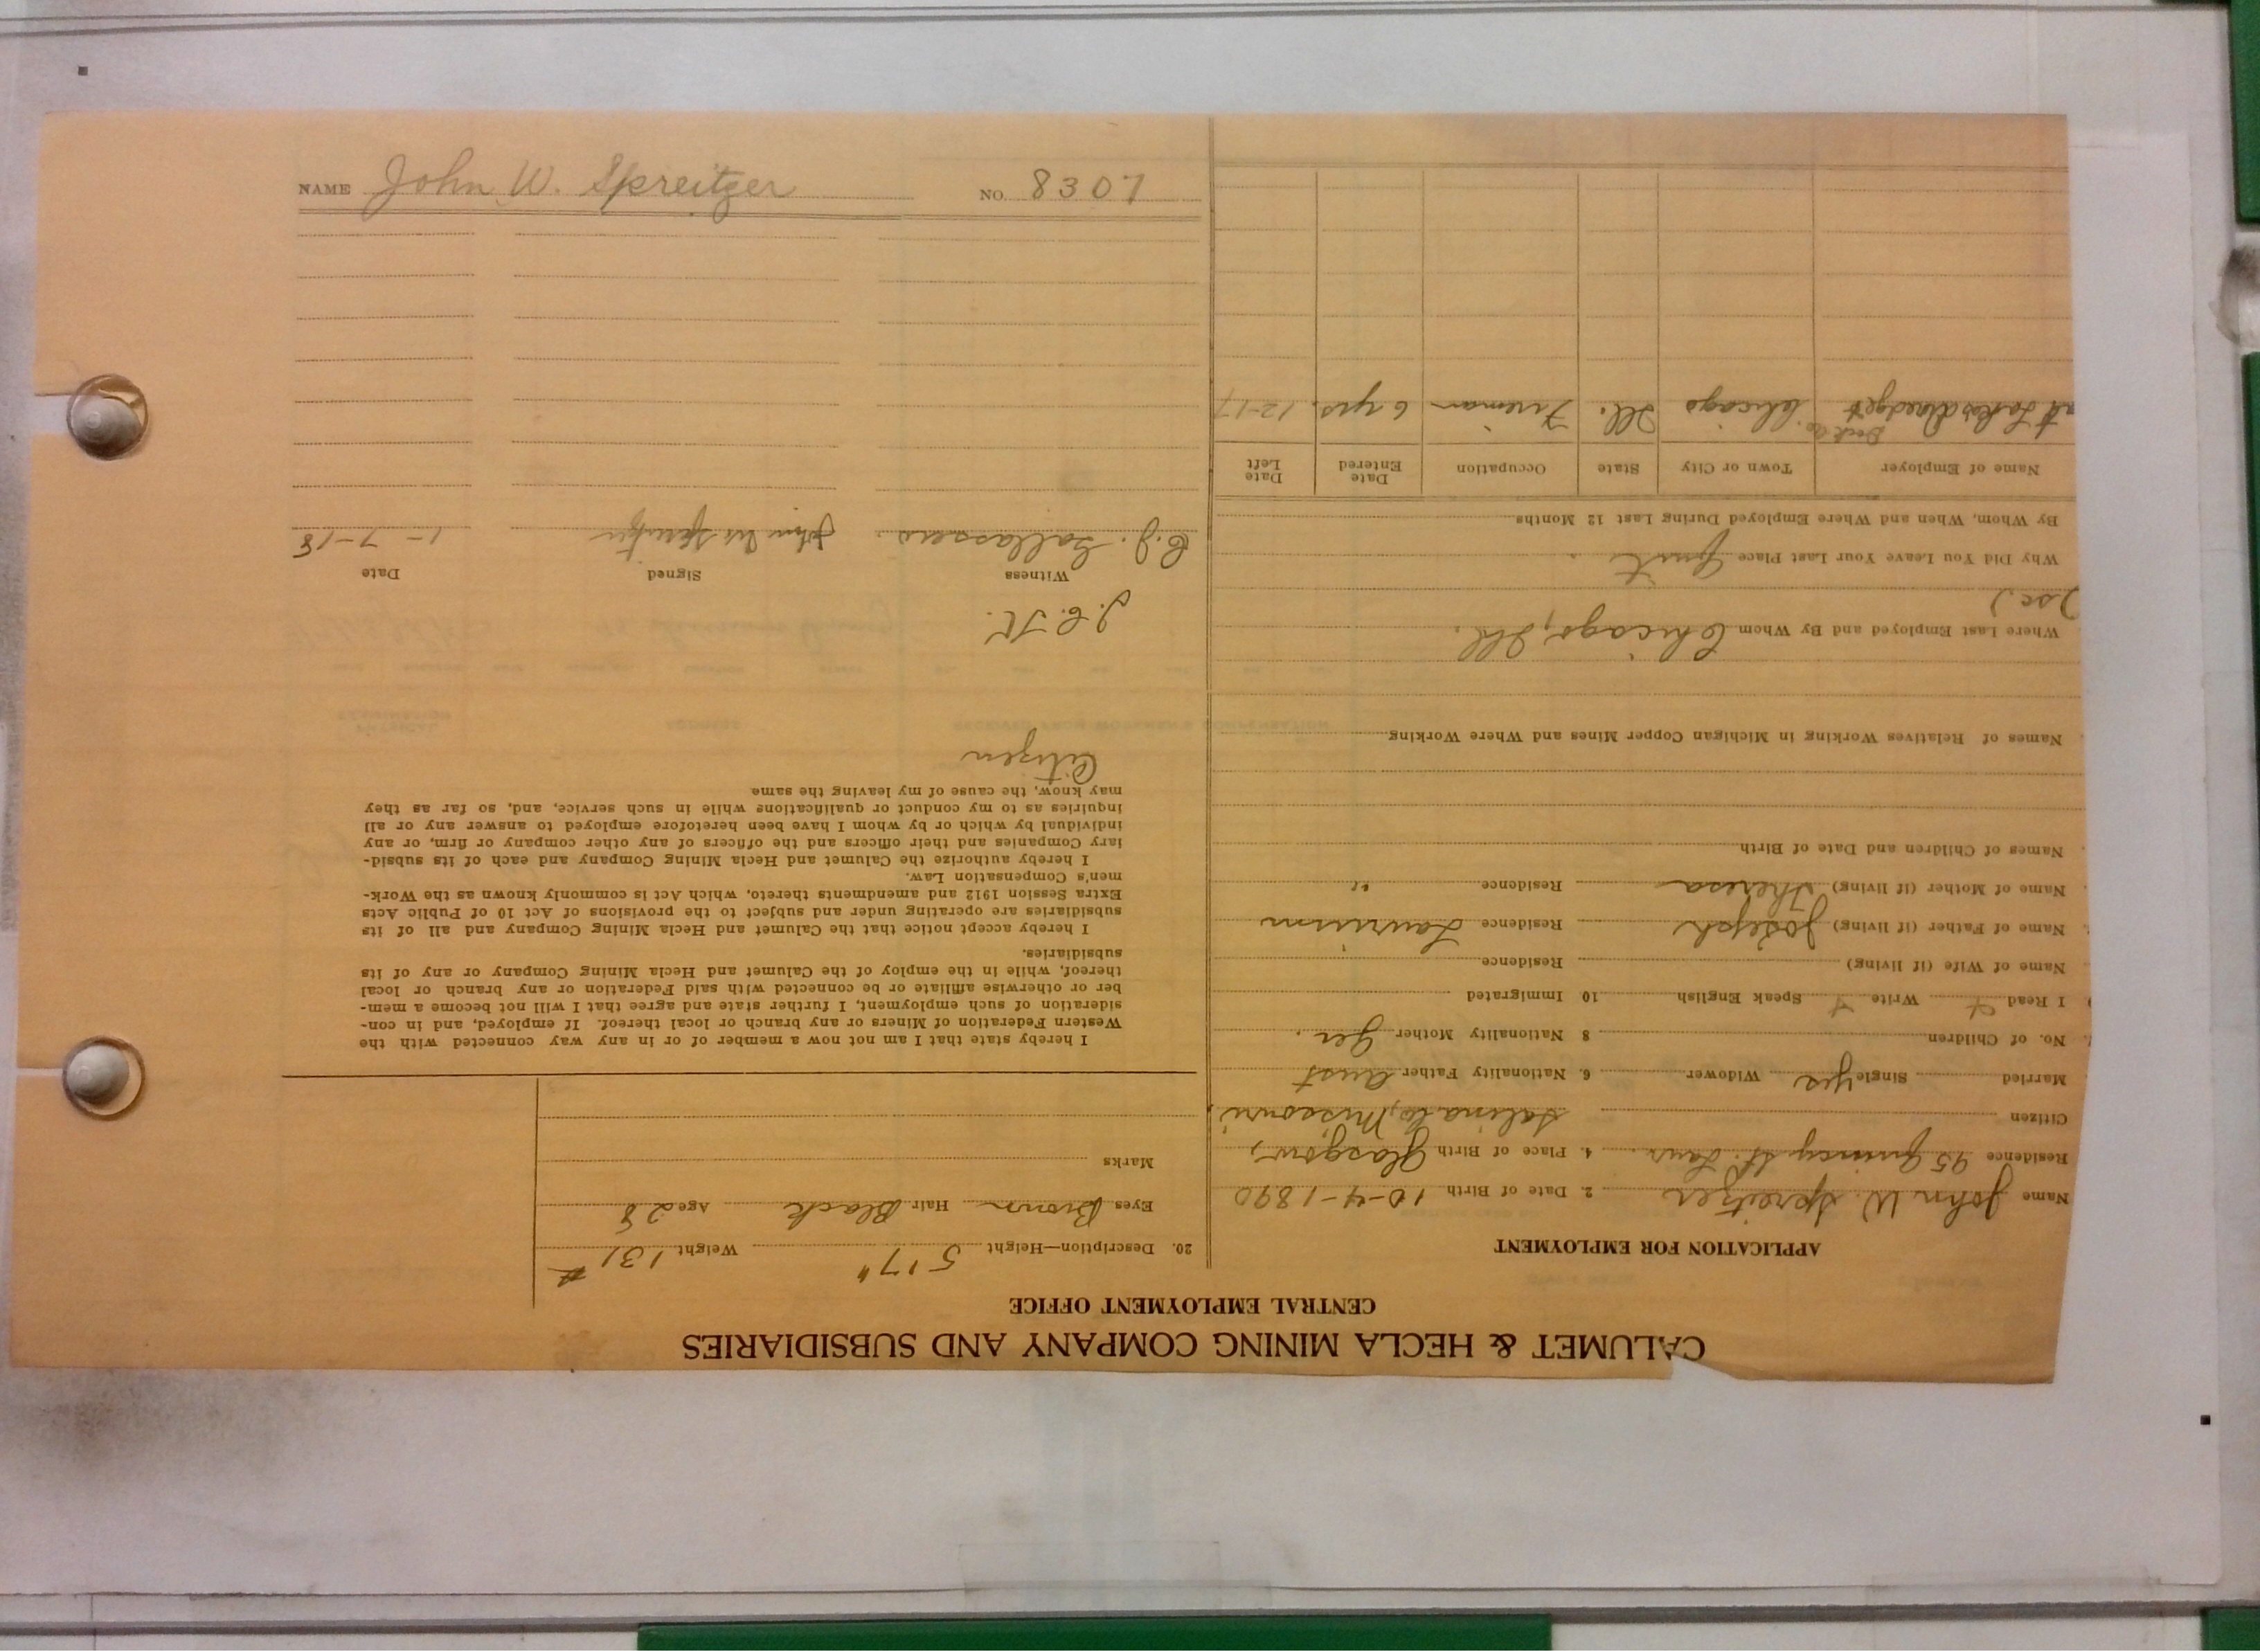 NAME John W. Spreitzer NO. 8307
CALUMET & HECLA MINING COMPANY AND SUBSIDIARIES
CENTRAL EMPLOYMENT OFFICE
APPLICATION FOR EMPLOYMENT
Name John W. Spreitzer 2. Date of Birth 10-4-1890
Residence 95 Quincy St. Laur. 4. Place of Birth Glasgow,
Citizen Salina Co, Missouri
Married Single Yes Widower 6. Nationality Father Aust
No. of Children 8 Nationality Mother Ger.
I Read Write Speak English 10 Immigrated
Name of Wife (if living) Residence
Name of Father (if living) Joseph Residence Laurium
Name of Mother (if living) Theresa Residence "
Names of Children and Date of Birth
Names of Relatives Working in Michigan Copper Mines and Where Working
Where Last Employed and By Whom Chicago, Ill.
Why Did You Leave Your Last Place Quit
By Whom, When and Where Employed During Last 12 Months
Name of Employer Town or City State Occupation Date Entered Date Left
t Lakes Dredge & Dock Co. Chicago Ill. Fireman 6 yrs. 12-17
20. Description—Height 5'7" Weight 131 #
Eyes Brown Hair Black Age 28
Marks
I hereby state that I am not now a member of or in any way connected with the
Western Federation of Miners or any branch or local thereof. If employed, and in con-
sideration of such employment, I further state and agree that I will not become a mem-
ber or otherwise affiliate or be connected with said Federation or any branch or local
thereof, while in the employ of the Calumet and Hecla Mining Company or any of its
subsidiaries.
I hereby accept notice that the Calumet and Hecla Mining Company and all of its
subsidiaries are operating under and subject to the provisions of Act 10 of Public Acts
Extra Session 1912 and amendments thereto, which Act is commonly known as the Work-
men's Compensation Law.
I hereby authorize the Calumet and Hecla Mining Company and each of its subsid-
iary Companies and their officers and the officers of any other company or firm, or any
individual by which or by whom I have been heretofore employed to answer any or all
inquiries as to my conduct or qualifications while in such service, and, so far as they
may know, the cause of my leaving the same
Citizen
Witness Signed Date
C.J. John W Spreitzer 1-7-18